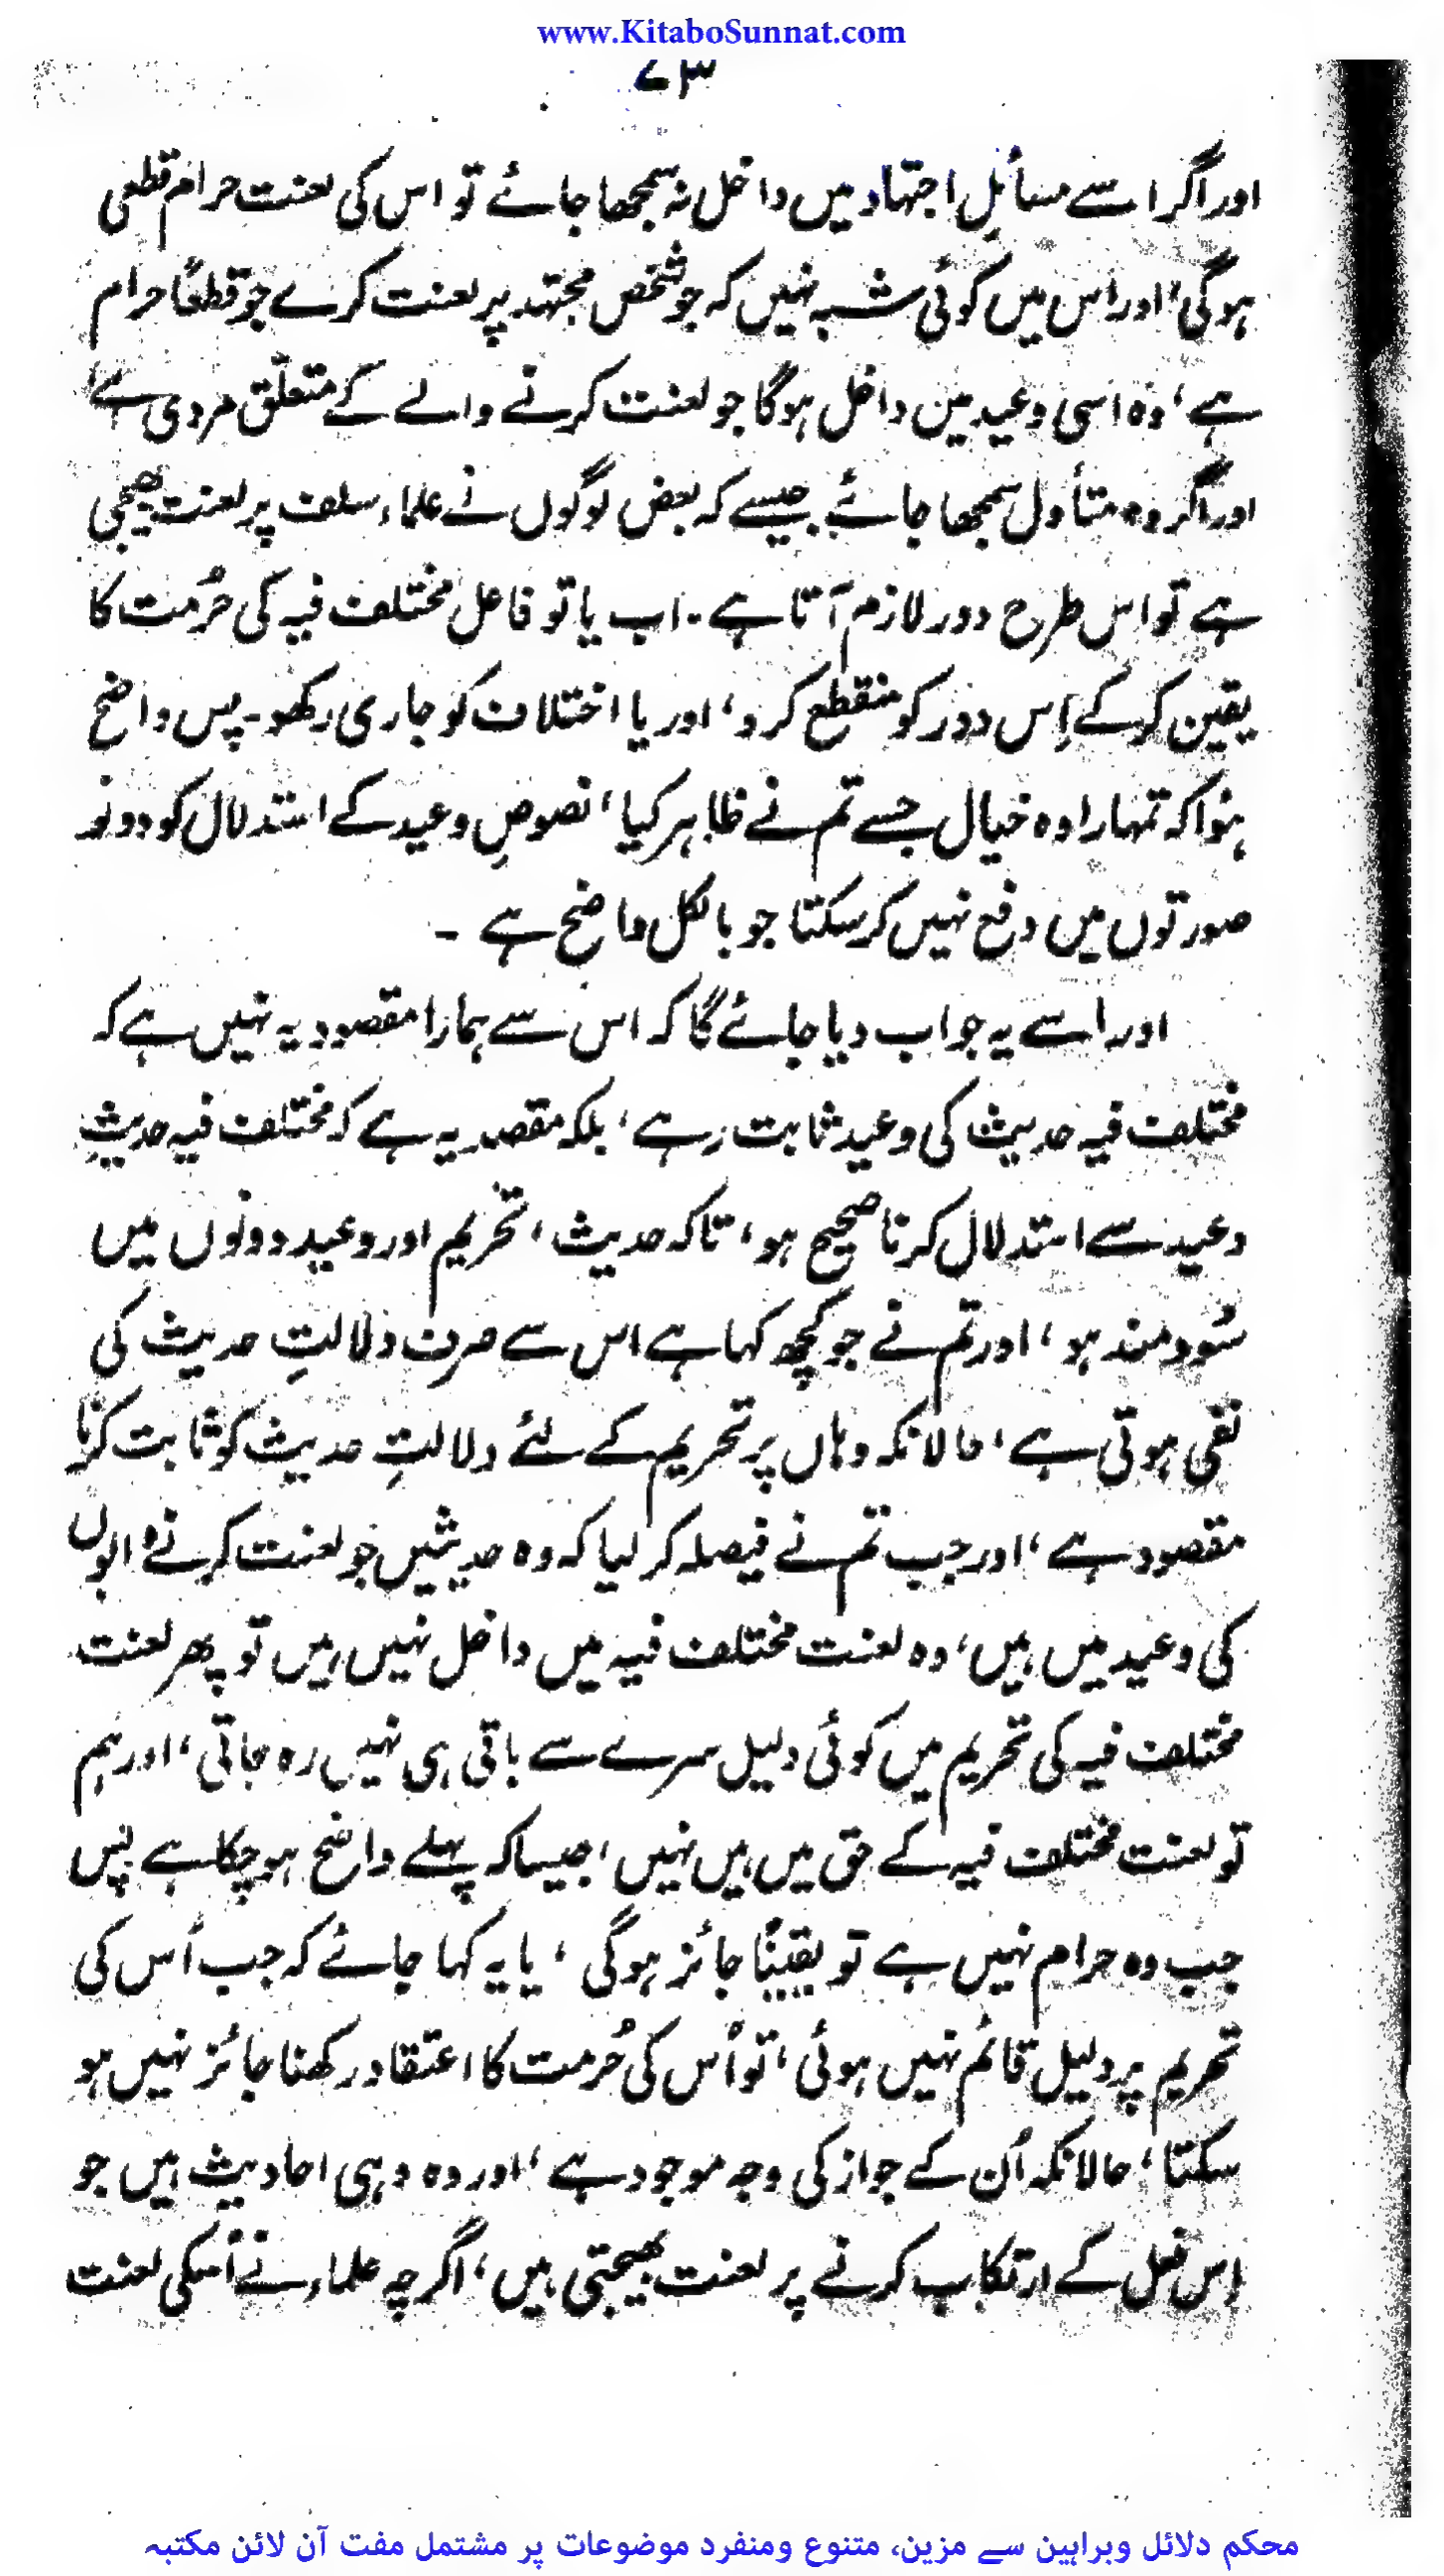 www.KitaboSunnat.com
۷۳
اور اگر اسے مسائلِ اجتہاد میں داخل نہ سمجھا جائے تو اس کی لعنت حرام قطعی
ہوگی، اور اس میں کوئی شبہ نہیں کہ جو شخص مجتہد پر لعنت کرے جو قطعاً حرام
ہے، وہ اسی وعید میں داخل ہوگا جو لعنت کرنے والے کے متعلّق مروی ہے
اور اگر وہ متأول سمجھا جائے جیسے کہ بعض لوگوں نے علماء سلف پر لعنت بھیجی
ہے تو اس طرح دور لازم آتا ہے۔ اب یا تو فاعل مختلف فیہ کی حُرمت کا
یقین کرکے اِس دور کو منقطع کر دو، اور یا اختلاف کو جاری رکھو۔ پس واضح
ہوا کہ تمہارا وہ خیال جسے تم نے ظاہر کیا، نصوصِ وعید کے استدلال کو دونوں
صورتوں میں دفع نہیں کر سکتا جو بالکل واضح ہے ۔
اور اسے یہ جواب دیا جائے گا کہ اس سے ہمارا مقصود یہ نہیں ہے کہ
مختلف فیہ حدیث کی وعید ثابت رہے، بلکہ مقصد یہ ہے کہ مختلف فیہ حدیثِ
وعید سے استدلال کرنا صحیح ہو، تاکہ حدیث، تحریم اور وعید دونوں میں
سُود مند ہو، اور تم نے جو کچھ کہا ہے اس سے صرف دلالتِ حدیث کی
نفی ہوتی ہے، حالانکہ وہاں پر تحریم کے لئے دلالتِ حدیث کو ثابت کرنا
مقصود ہے، اور جب تم نے فیصلہ کر لیا کہ وہ حدیثیں جو لعنت کرنے والوں
کی وعید میں ہیں، وہ لعنت مختلف فیہ میں داخل نہیں ہیں تو پھر لعنت
مختلف فیہ کی تحریم میں کوئی دلیل سرے سے باقی ہی نہیں رہ جاتی، اور ہم
تو لعنت مختلف فیہ کے حق میں ہیں نہیں، جیسا کہ پہلے واضح ہو چکا ہے پس
جب وہ حرام نہیں ہے تو یقیناً جائز ہوگی، یا یہ کہا جائے کہ جب اُس کی
تحریم پر دلیل قائم نہیں ہوئی، تو اُس کی حُرمت کا اعتقاد رکھنا جائز نہیں ہو
سکتا، حالانکہ اُن کے جواز کی وجہ موجود ہے، اور وہ وہی احادیث ہیں جو
اِس فعل کے ارتکاب کرنے پر لعنت بھیجتی ہیں، اگرچہ علماء نے اُسکی لعنت
محکم دلائل وبراہین سے مزین، متنوع ومنفرد موضوعات پر مشتمل مفت آن لائن مکتبہ